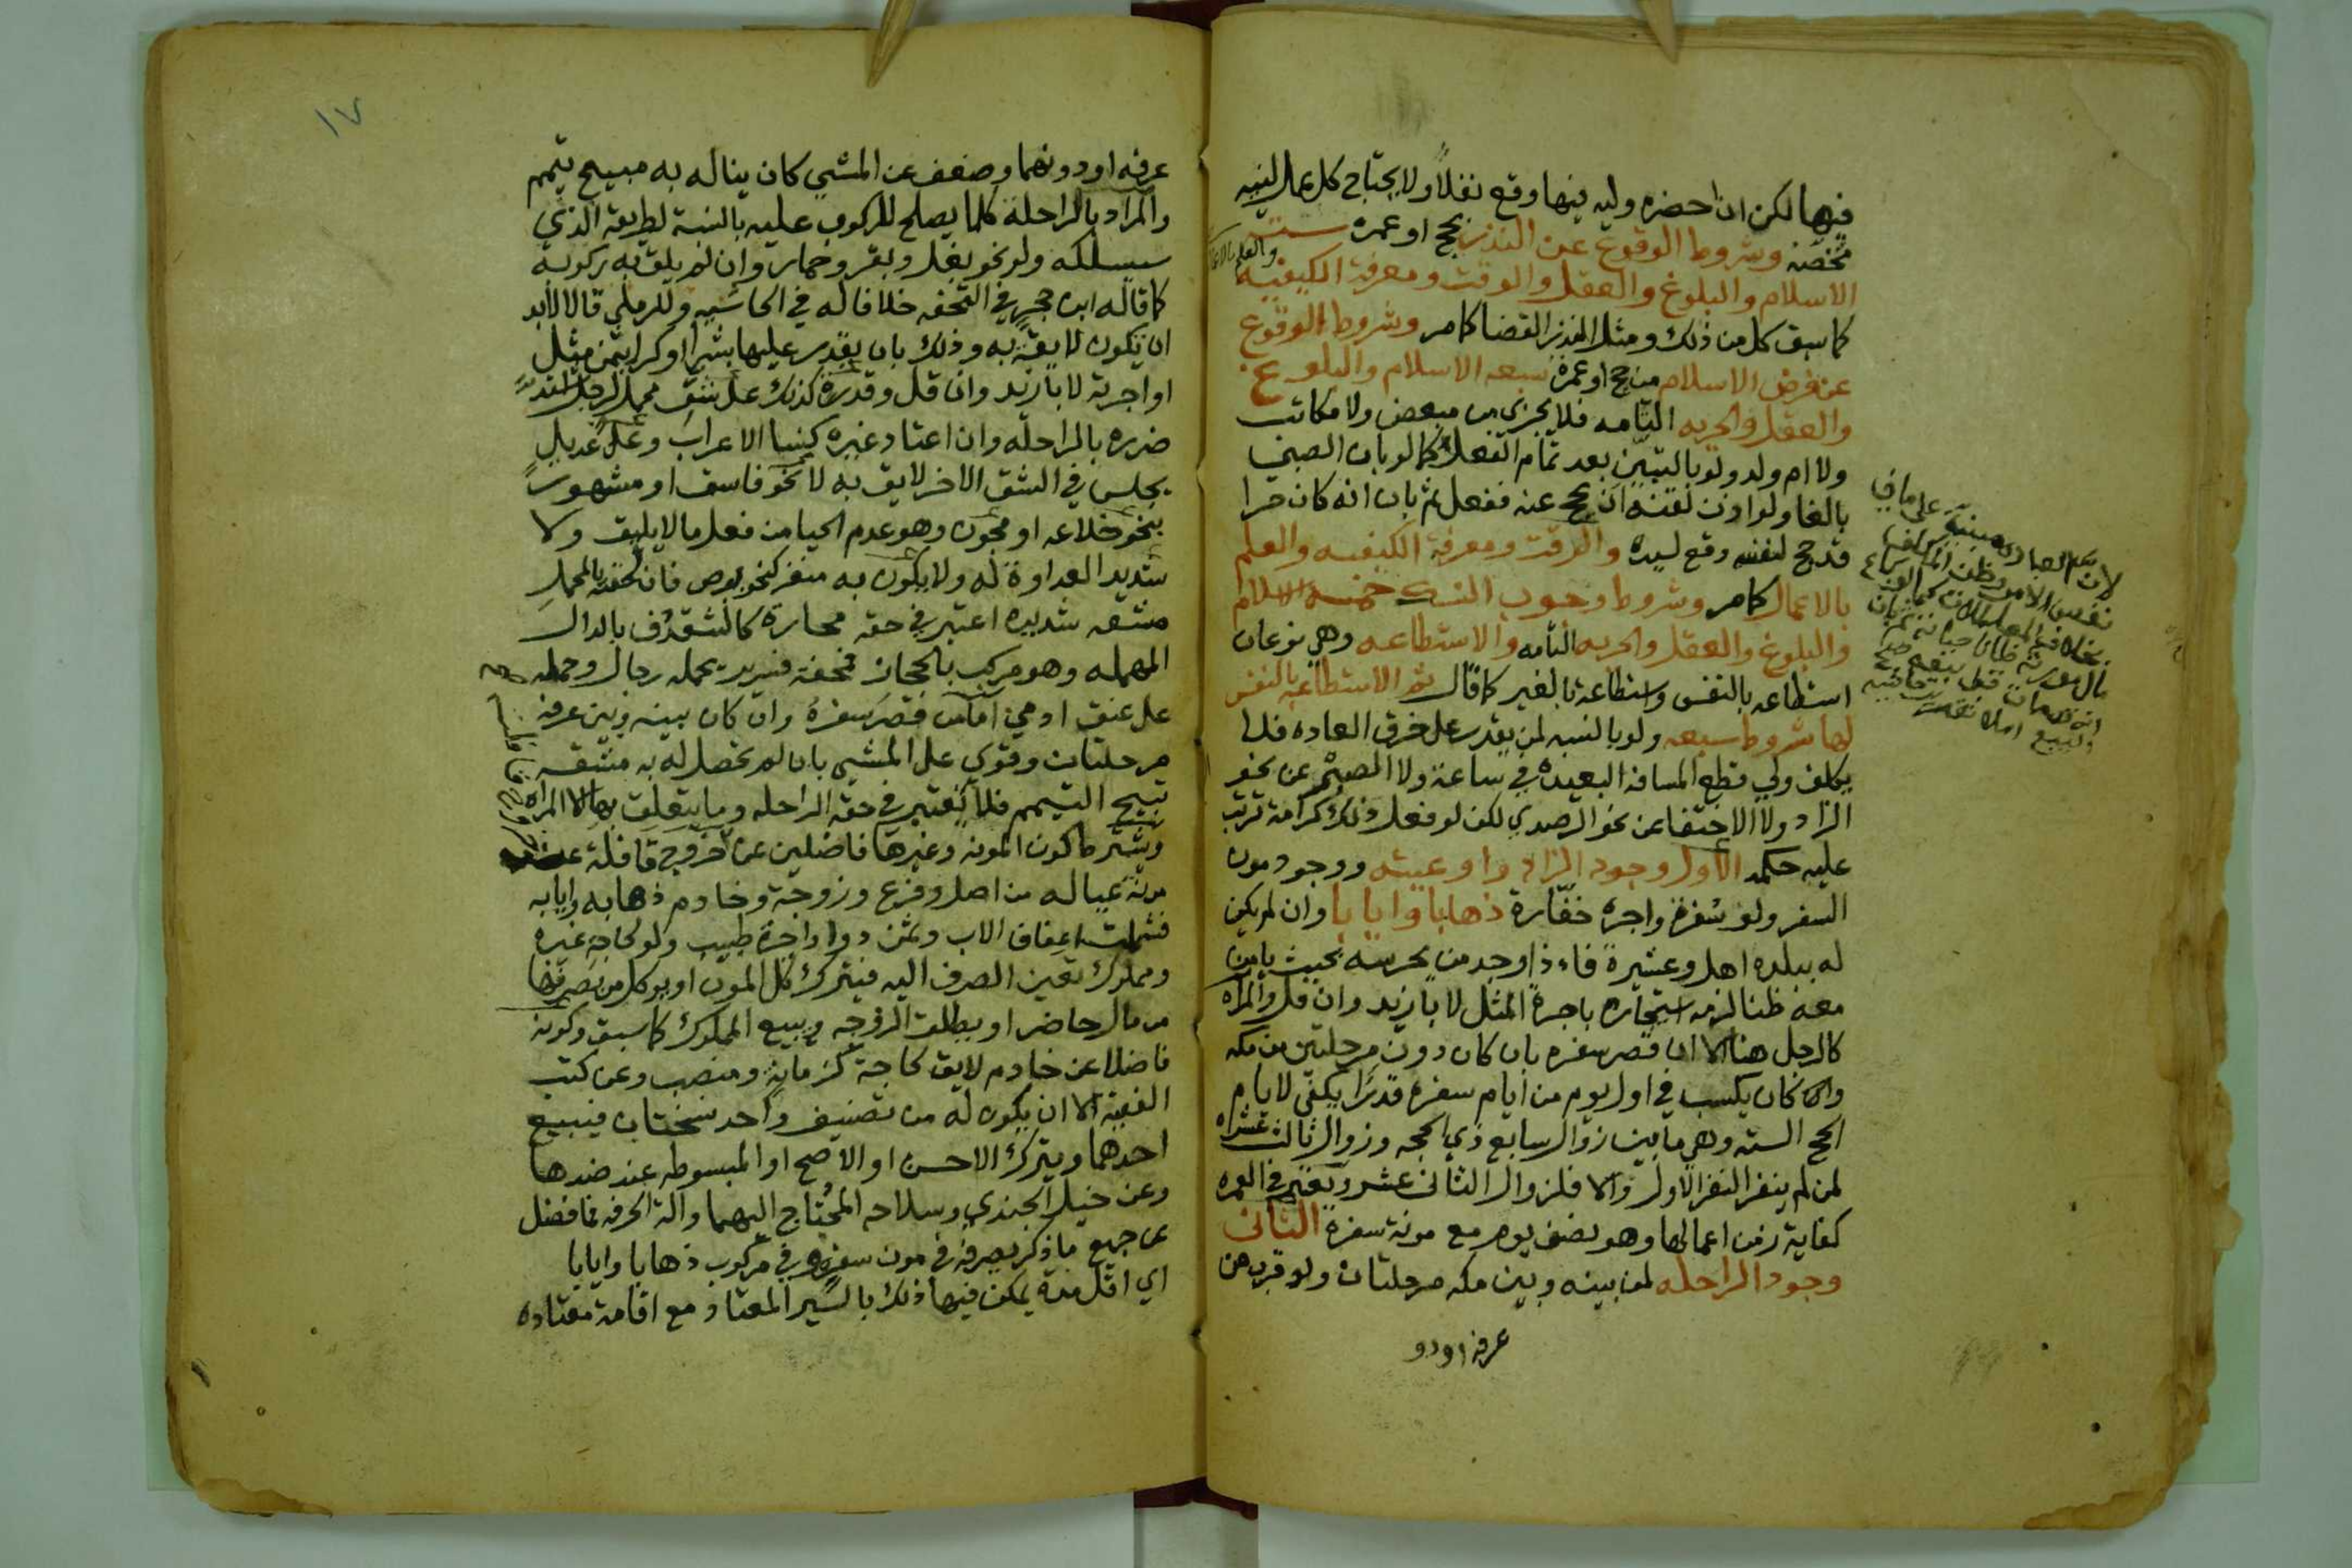 فيها لكن ان احضره وليه فيها وقع نفلا ولا يحتاج كل عمل لنيه
تخصه وشروط الوقوع عن النذر بحج او عمره ستة
الاسلام والبلوغ والعقل والوقت ومعرفة الكيفيه والعلم بالاعمال
كما سبق كل من ذلك ومثل النذر القضا كما مر وشروط الوقوع
عن فرض الاسلام من حج او عمرة سبعه الاسلام والبلوغ
والعقل والحريه التامه فلا يجزى من مبعض ولا مكاتب
ولا ام ولد ولو بالتبين بعد تمام الفعل كما لو بان الصبي
بالغا ولو اذن لقنه ان يحج عنه ففعل ثم بان انه كان حرا
قد حج لنفسه وقع لسيده والوقت ومعرفة الكيفيه والعلم
بالاعمال كما مر وشروط وجوب النسك خمسه الاسلام
والبلوغ والعقل والحريه التامه والاستطاعه وهي نوعان
استطاعه بالنفس واستطاعة بالغير كما قال ثم الاستطاعه بالنفس
لها شروط سبعه ولو بالنسبه لمن يقدر على خرق العاده فلا
يكلف ولي قطع المسافه البعيده في ساعة ولا الصبر عن نحو
الزاد ولا الاختفا عن نحو الرصدي لكن لو فعل ذلك كرامة ترتب
عليه حكمه الاول وجود الزاد واوعيته ووجود مون
السفر ولو سفرة واجرة خفارة ذهابا وايابا وان لم يكن
له ببلده اهل وعشيرة فاذا وجد من يحرسه بحيث يامن
معه ظنا لزمه استيجاره باجرة المثل لا بازيد وان قل والمراه
كالرجل هنا الا ان قصر سفره بان كان دون مرحلتين من مكه
وكان يكسب في اول يوم من ايام سفره قدرا يكفي لايام
الحج الستة وهي ما بين زوال سابع ذي الحجه وزوال ثالث عشره
لمن لم ينفر النفر الاول والا فلزوال الثاني عشر ويعتبر في العمره
كفاية زمن اعمالها وهو نصف يوم مع مونة سفره الثاني
وجود الراحله لمن بينه وبين مكه مرحلتان ولو قرب من
عرفة او دو
١٧
عرفه او دونهما وضعف عن المشي كان يناله به مبيح تيمم
والمراد بالراحلة كلما يصلح للركوب عليه بالنسبة لطريقه الذي
يسلكه ولو نحو بغل وبقر وحمار وان لم يلق به ركوبه
كما قاله ابن حجر في التحفه خلافا له في الحاشيه وللرملي قالا لابد
ان تكون لايقة به وذلك بان يقدر عليها بشرا او كرا بثمن مثل
او اجرته لا بازيد وان قل وقدرة كذلك على شق محمل لرجل اشتد
ضرره بالراحله وان اعتاد غيره كنسا الاعراب وعلى عديل
يجلس في الشق الاخر لايق به لا نحو فاسق او مشهور
بنحو خلاعه او مجون وهو عدم الحيا من فعل ما لا يليق ولا
شديد العداوة له ولا يكون به منفر كنحو برص فان لحقته بالمحمل
مشقه شديده اعتبر في حقه محارة كالشقدف بالدال
المهمله وهو مركب بالحجاز فمحفة فسرير يحمله رجال وحمله
على عنق ادمي اما من قصر سفره وان كان بينه وبين عرفه
مرحلتان وقوي على المشي بان لم تحصل له به مشقه
تبيح التيمم فلا تعتبر في حقه الراحله وما يتعلق بها الا المراه
ويشترط كون المونه وغيرها فاضلين عن خروج قافلة
مونة عياله من اصل وفرع وزوجة وخادم ذهابه وايابه
فشملت اعفاف الاب وثمن دوا واجرة طبيب ولو لحاجة غيره
ومملوك تعين الصرف اليه فيترك كل المون او يوكل من يصرفها
من مال حاضر او يطلق الزوجه ويبيع المملوك كما سبق وكونه
فاضلا عن خادم لايق لحاجة كزمانة ومنصب وعن كتب
الفقيه الا ان يكون له من تصنيف واحد نسختان فيبيع
احدهما ويترك الاحسن او الاصح او المبسوطه عند ضدها
وعن خيل الجندي وسلاحه المحتاج اليهما والة الحرفه فما فضل
عن جميع ما ذكر يصرفه في مون سفره وفي مركوب ذهابا وايابا
اي اقل مدة يمكن فيها ذلك بالسير المعتاد مع اقامة معتاده